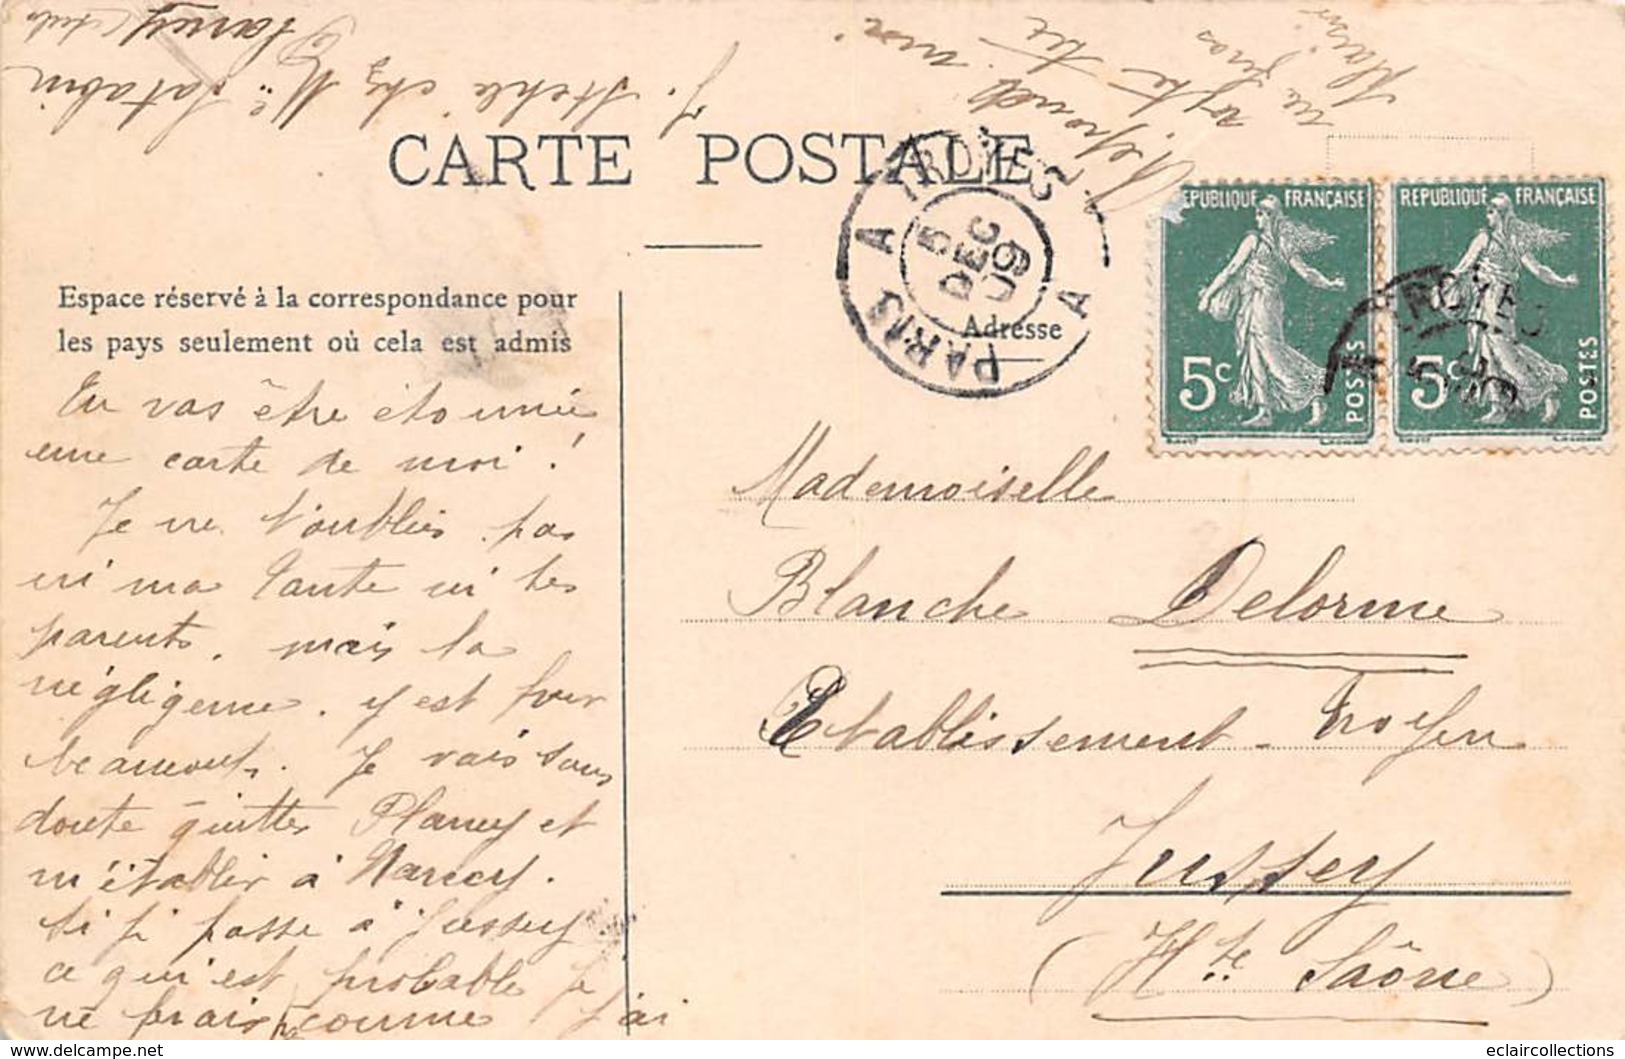 CARTE POSTALE
Espace réservé à la correspondance pour
les pays seulement où cela est admis
Adresse
Tu vas être étonnée
une carte de moi !
Je ne t'oublie pas
ni ma tante ni tes
parents, mais la
négligence y est pour
beaucoup. Je vais sans
doute quitter Plancy et
m'établir à Nancy.
Si je passe à Jussey
ce qui est probable je
ne ferais comme j'ai
J. Stehlé chez Me Patabin
Plancy Aube
Répond moi
vite
tu feras
plaisir
PARIS A TROYES
5
DEC
09
PARIS A
REPUBLIQUE FRANÇAISE
5c
POSTES
REPUBLIQUE FRANÇAISE
5c
POSTES
TROYES
Mademoiselle
Blanche Delorme
Etablissement Troyen
Jussey
(Hte Saône)
eclaircollections